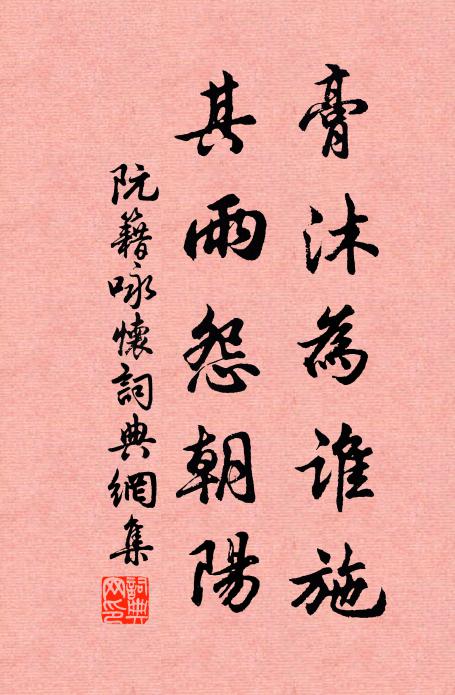 膏沐為誰施
其雨怨朝陽
阮籍咏懷詞典網集
詞典网印